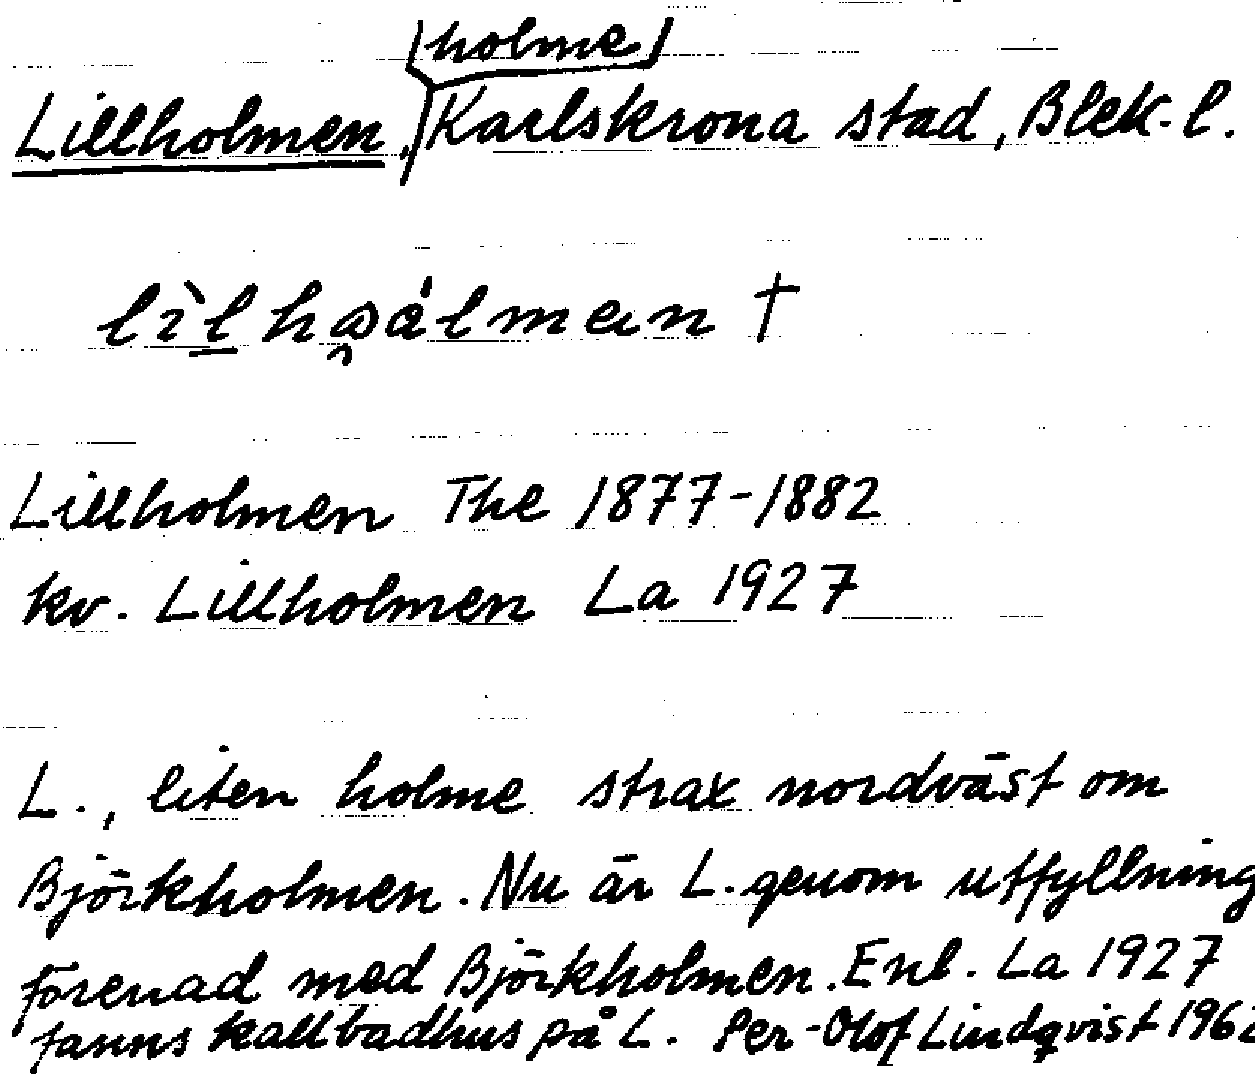 holme
Lillholmen, Karlskrona stad, Blek. l.
Lillholmen The 1877-1882
kv. Lillholmen La 1927
L., liten holme strax nordväst om
Björkholmen. Nu är L. genom utfyllning
förenad med Björkholmen. Enl. La 1927
fanns kallbadhus på L. Per-Olof Lindqvist